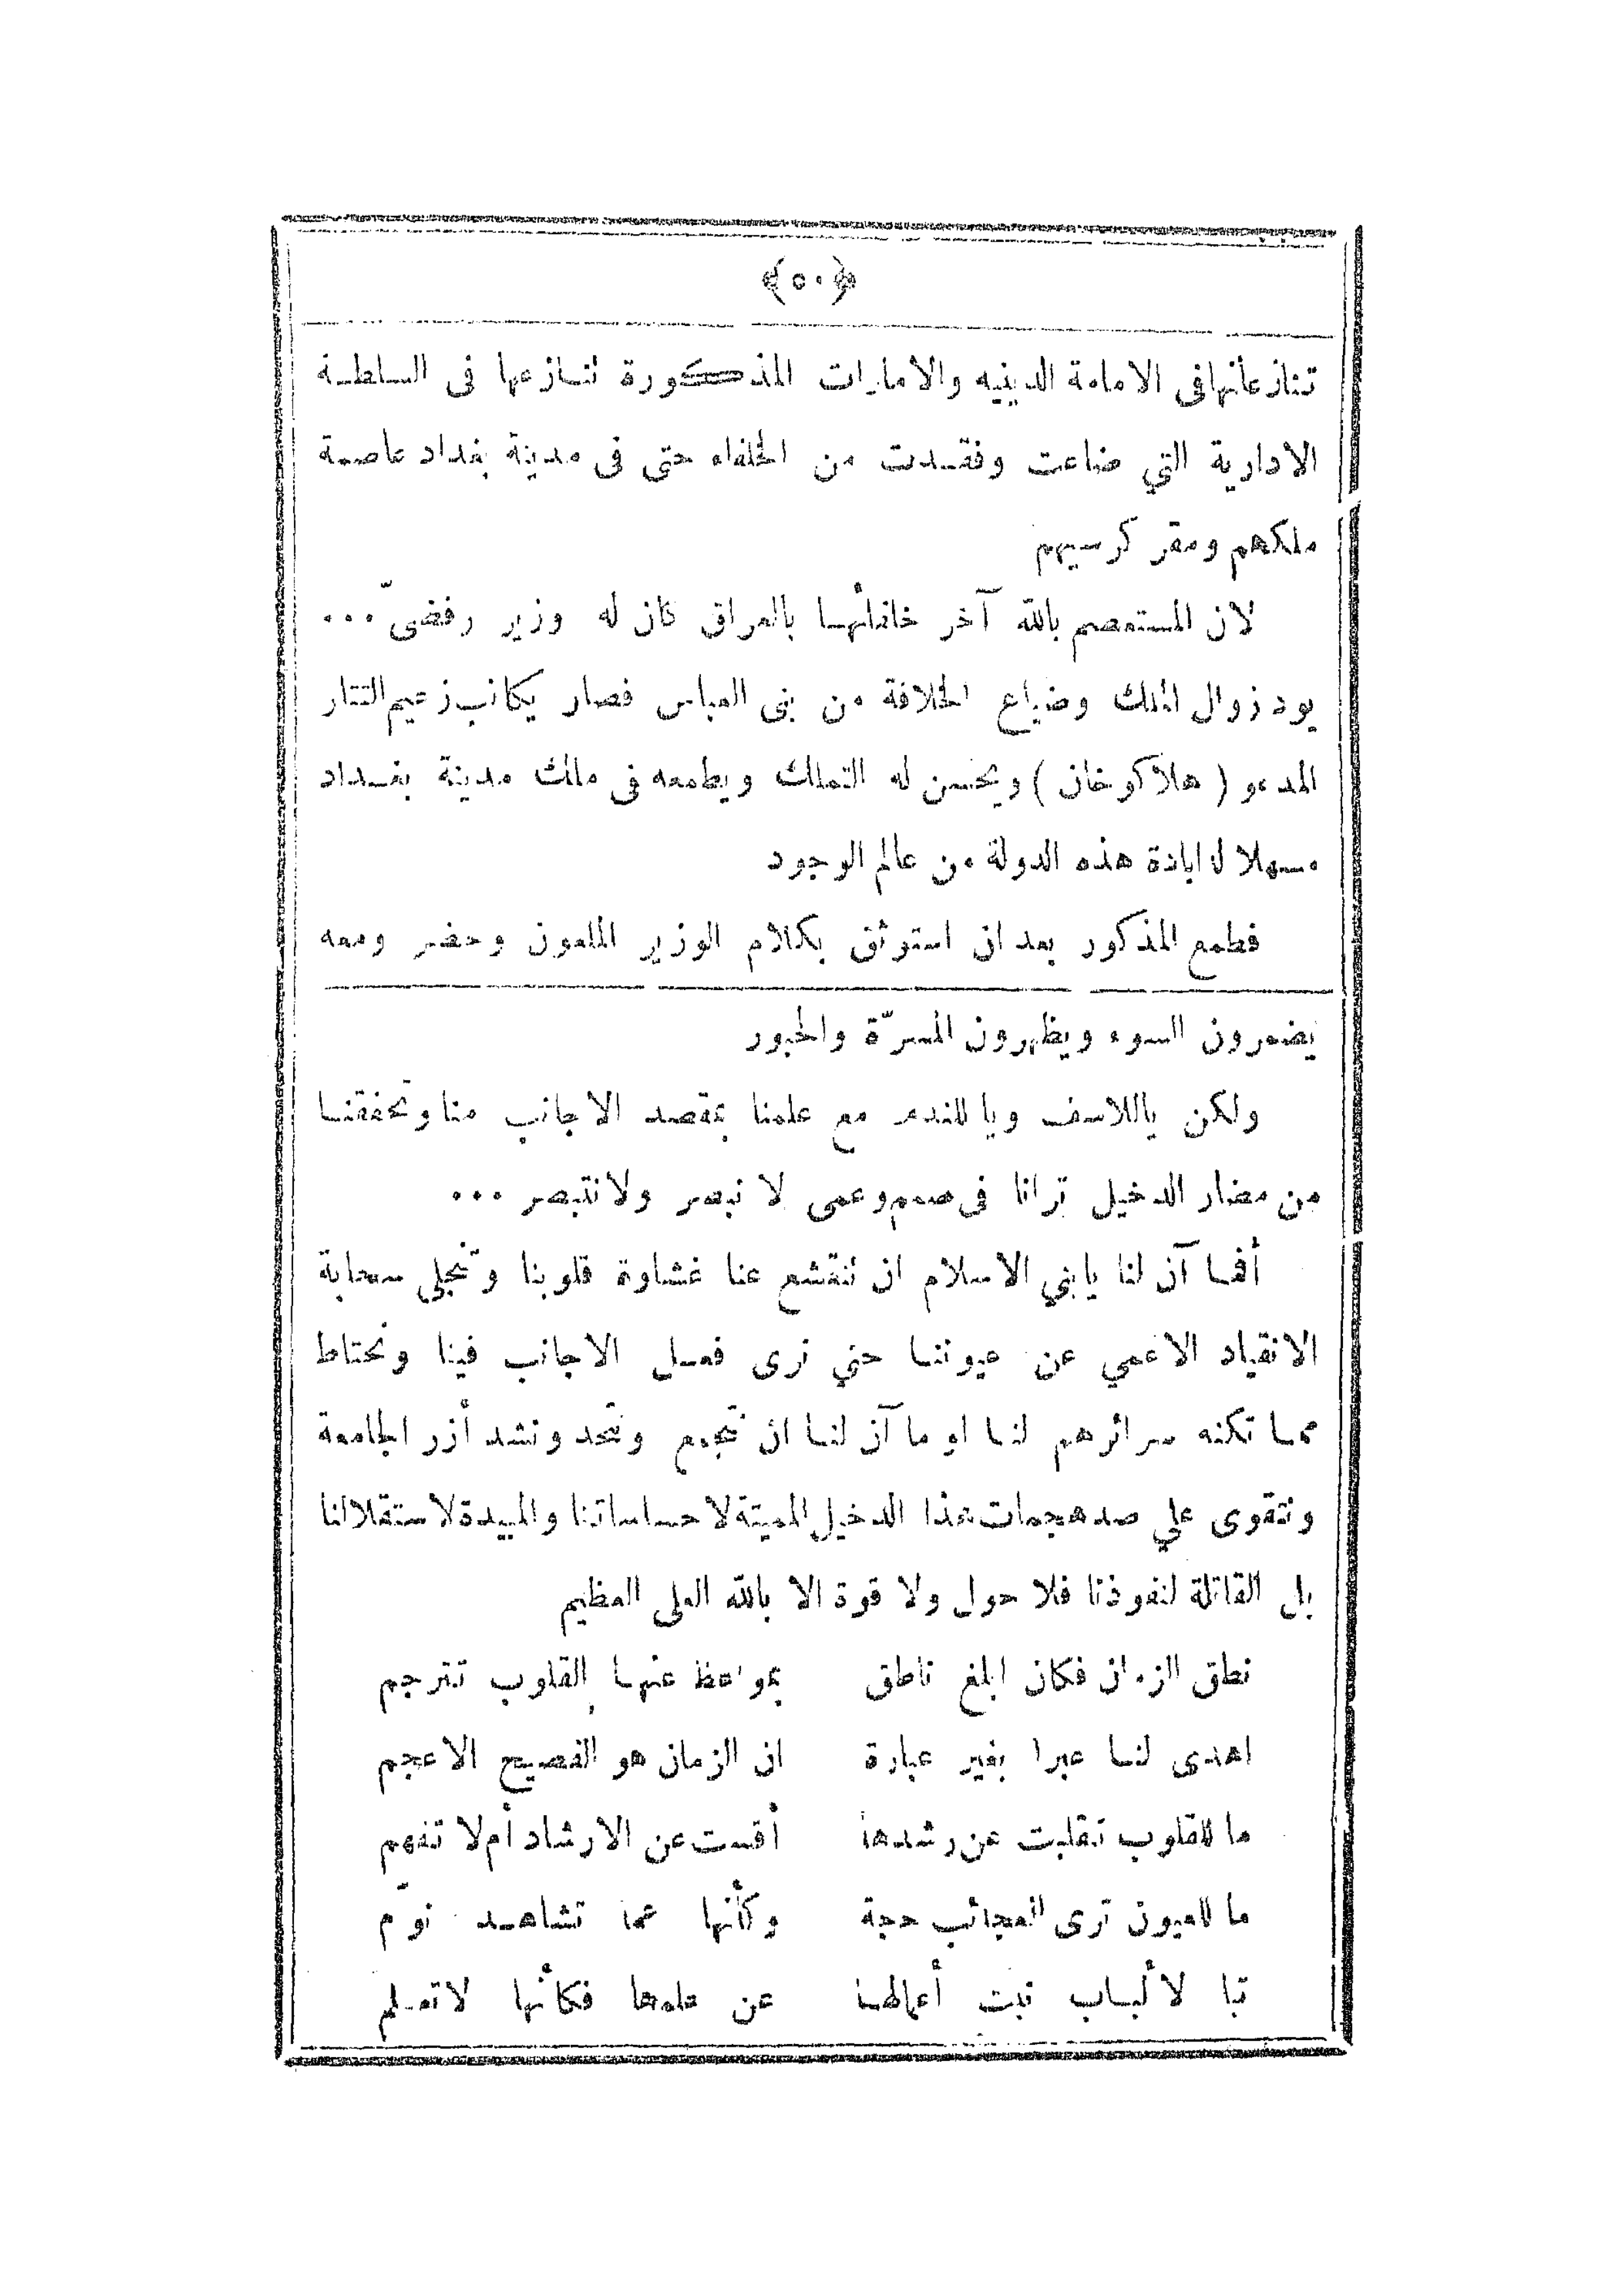 ﴿٥٠﴾
تنازعأنهافى الامامة الدينيه والامارات المذكورة تنازعها فى السلطة
الادارية التي ضاعت وفقدت من الخلفاء حتى فى مدينة بغداد عاصمة
ملكهم ومقر كرسيهم
لان المستعصم بالله آخر خلفائها بالعراق كان له وزير رفضىّ ...
يود زوال الملك وضياع الخلافة من بنى العباس فصار يكاتب زعيم التتار
المدعو ( هلاكوخان ) ويحسن له التملك ويطمعه فى ملك مدينة بغداد
مسهلا له ابادة هذه الدولة من عالم الوجود
فطمع المذكور بعد ان استوثق بكلام الوزير الملعون وحضر ومعه
يضمرون السوء ويظهرون المسرّة والحبور
ولكن ياللاسف ويا للندم مع علمنا بمقصد الاجانب منا وتحققنا
من مضار الدخيل ترانا فى صمم وعمى لا نبصر ولا نتبصر ...
أفما آن لنا يابني الاسلام ان تنقشع عنا غشاوة قلوبنا وتنجلى سحابة
الانقياد الاعمي عن عيوننا حتي نرى فعل الاجانب فينا ونحتاط
مما تكنه سرائرهم لنا او ما آن لنا ان نتجمع ونتحد ونشد أزر الجامعة
ونتقوى علي صد هجمات هذا الدخيل المميتة لاحساساتنا والمبيدة لاستقلالنا
بل القاتلة لنفوذنا فلا حول ولا قوة الا بالله العلى العظيم
نطق الزمان فكان ابلغ ناطق بمواعظ عنها القلوب تترجم
اهدى لنا عبرا بغير عبارة ان الزمان هو الفصيح الاعجم
ما للقلوب تقلبت عن رشدها أقست عن الارشاد أم لا تفهم
ما للعيون ترى العجائب حجة وكأنها عما تشاهد نوّم
تبا لألباب نبت أعمالها عن علمها فكأنها لا تعلم